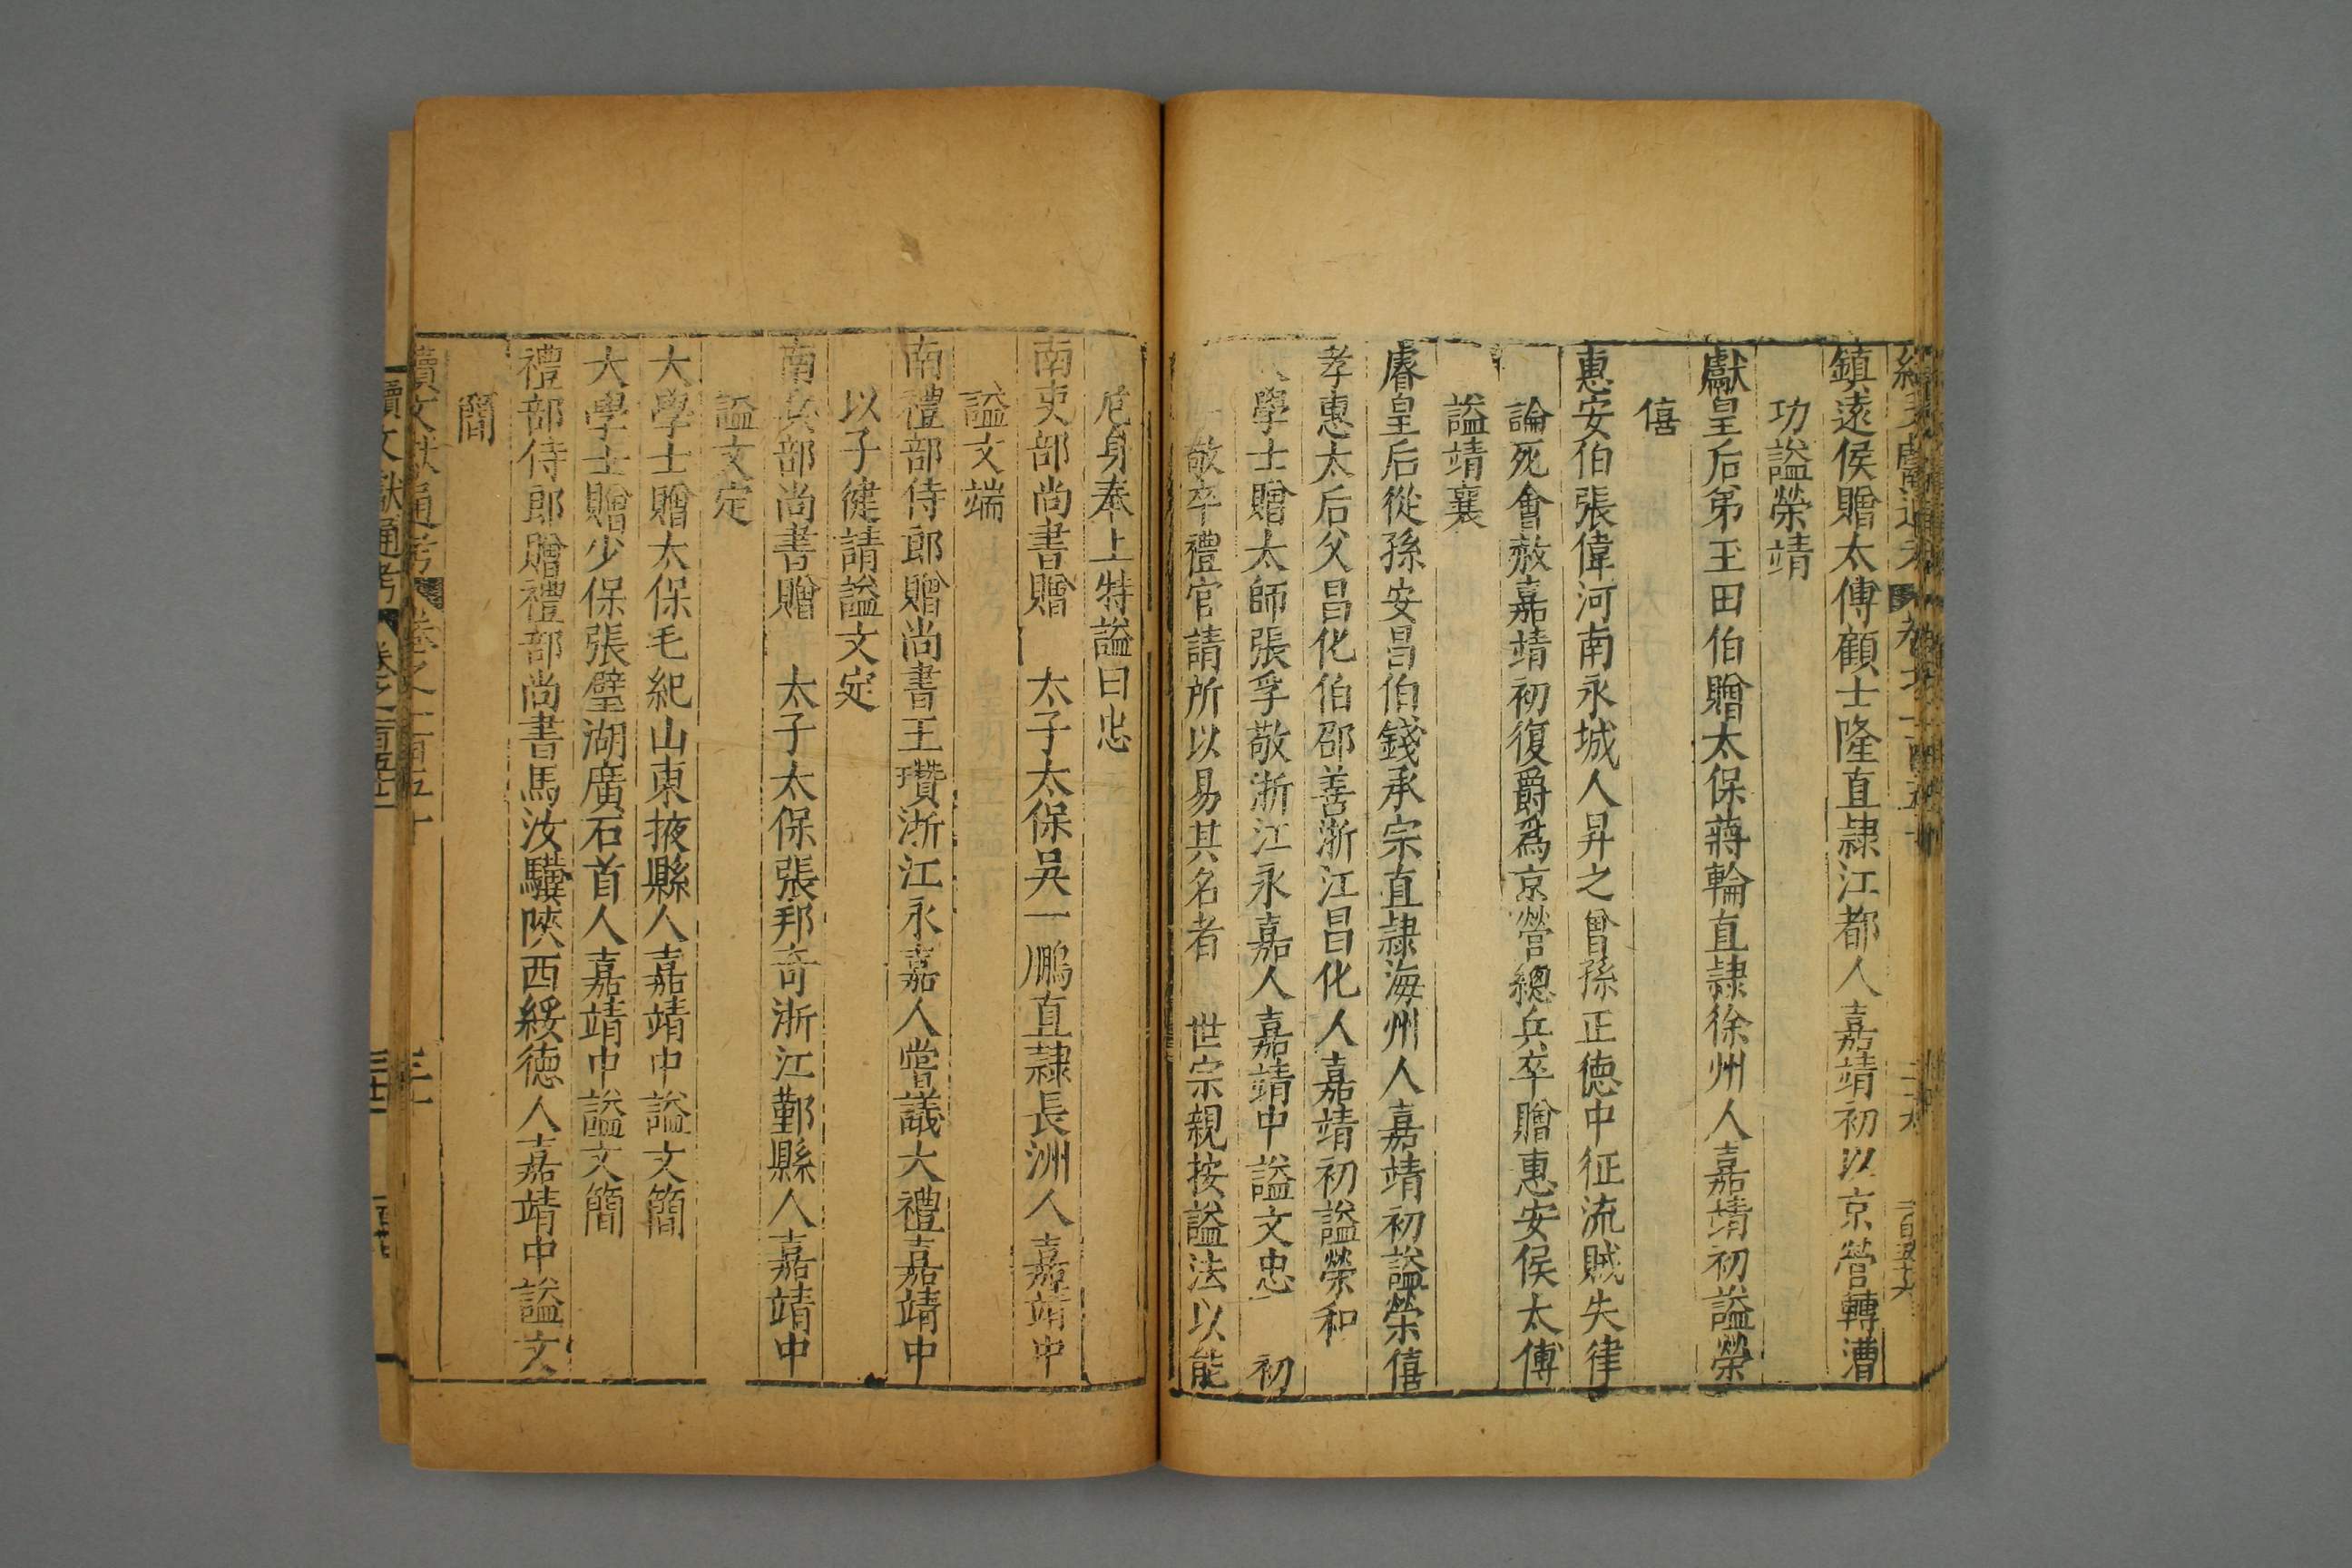 鎮遠侯贈太傅顧士隆直隷江都人嘉靖初以京營轉漕
功謚榮靖
獻皇后弟玉田伯贈太保蔣輪直隷徐州人嘉靖初謚榮
僖
惠安伯張偉河南永城人昇之曾孫正徳中征流賊失律
論死會赦嘉靖初復爵為京營總兵卒贈惠安侯太傅
謚靖襄
睿皇后從孫安昌伯錢承宗直隷海州人嘉靖初謚榮僖
孝惠太后父昌化伯邵善浙江昌化人嘉靖初謚榮和
學士贈太師張孚敬浙江永嘉人嘉靖中謚文忠 初
敬卒禮官請所以易其名者 世宗親按謚法以能
危身奉上特謚曰忠
南吏部尚書贈 太子太保吳一鵬直隷長洲人嘉靖中
謚文端
南禮部侍郎贈尚書王瓚浙江永嘉人嘗議大禮嘉靖中
以子健請謚文定
南兵部尚書贈 太子太保張邦奇浙江鄞縣人嘉靖中
謚文定
大學士贈太保毛紀山東掖縣人嘉靖中謚文簡
大學士贈少保張璧湖廣石首人嘉靖中謚文簡
禮部侍郎贈禮部尚書馬汝驥陝西綏徳人嘉靖中謚文
簡
續文獻通考
續文獻通考 卷之一百五十